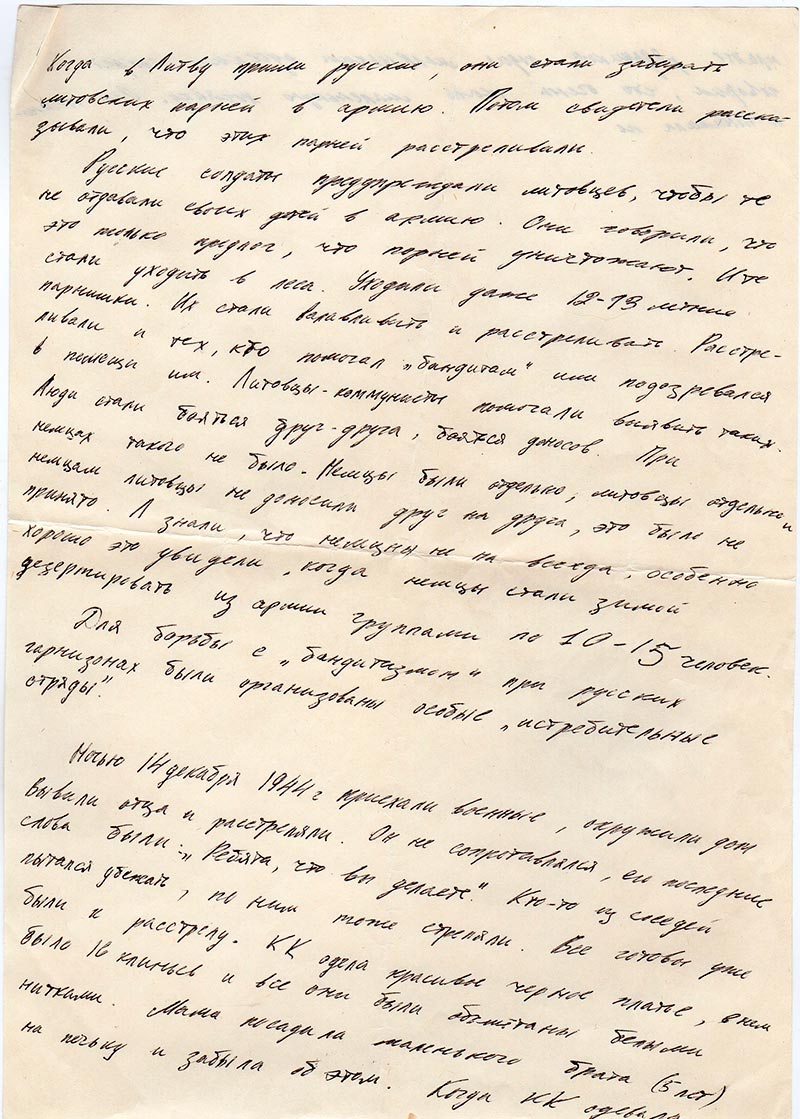 Когда в Литву пришли русские, они стали забирать
литовских парней в армию. Потом свидетели расска-
зывали, что этих парней расстреливали.
Русские солдаты предупреждали литовцев, чтобы те
не отдавали своих детей в армию. Они говорили, что
это только предлог, что парней уничтожают. И те
стали уходить в леса. Уходили даже 12-13 летние
парнишки. Их стали вылавливать и расстреливать. Расстре-
ливали и тех, кто помогал „бандитам" или подозревался
в помощи им. Литовцы-коммунисты помогали выявить таких.
Люди стали бояться друг-друга, боятся доносов. При
немцах такого не было. Немцы были отдельно, литовцы отдельно и
немцам литовцы не доносили друг на друга, это было не
принято. А знали, что немцы не на всегда, особенно
хорошо это увидели, когда немцы стали зимой
дезертировать из армии группами по 10-15 человек.
Для борьбы с „бандитизмом" при русских
гарнизонах были организованы особые „истребительные
отряды".
Ночью 14 декабря 1944 г приехали военные, окружили дом
Вывели отца и расстреляли. Он не сопротивлялся, его последние
слова были: „Ребята, что вы делаете". Кто-то из соседей
пытался убежать, по ним тоже стреляли. Все готовы уже
были к расстрелу. КК одела красивое черное платье, в нем
было 16 клиньев и все они были обмётаны белыми
нитками. Мама посадила маленького брата (5 лет)
на печку и забыла об этом. Когда КК одевала